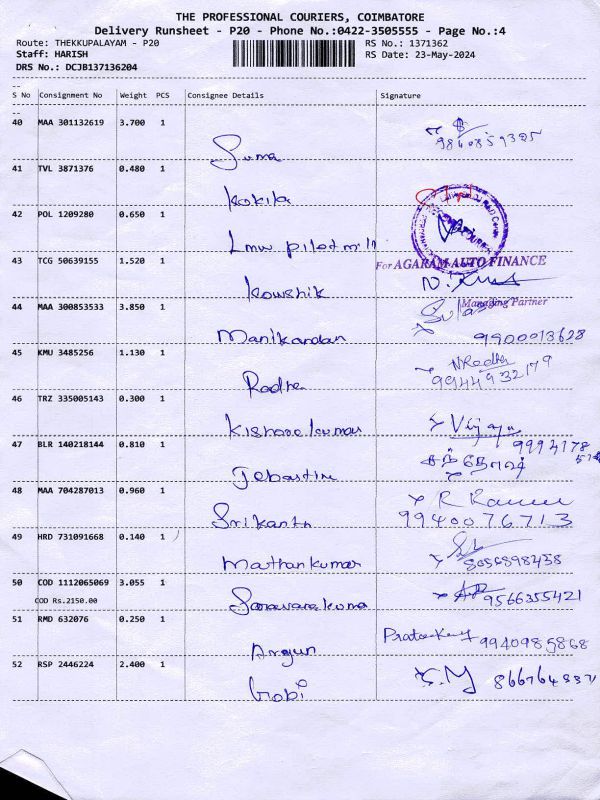 THE PROFESSIONAL COURIERS, COIMBATORE
Delivery Runsheet - P20 - Phone No.:0422-3505555 - Page No.:4
Route: THEKKUPALAYAM - P20 RS No.: 1371362
Staff: HARISH RS Date: 23-May-2024
DRS No.: DCJB137136204
S No Consignment No Weight PCS Consignee Details Signature
40 MAA 301132619 3.700 1
9840859385
Suma
41 TVL 3871376 0.480 1
Kokila
42 POL 1209280 0.650 1
Lmw pilot mill
43 TCG 50639155 1.520 1 For AGARAM AUTO FINANCE
Kowshik
44 MAA 300853533 3.850 1 Managing Partner
Manikandan 9900013628
45 KMU 3485256 1.130 1 N Radha
9944932179
Radha
46 TRZ 335005143 0.300 1
Kishore kumar Vijaya
47 BLR 140218144 0.810 1 9994178
Jebastin
48 MAA 704287013 0.960 1
Srikanth 9940076713
49 HRD 731091668 0.140 1
Mathan kumar 8056898458
50 COD 1112065069 3.055 1
COD Rs.2150.00
Saravanakumar 9566355421
51 RMD 632076 0.250 1
9940985868
Argun
52 RSP 2446224 2.400 1
Gobi